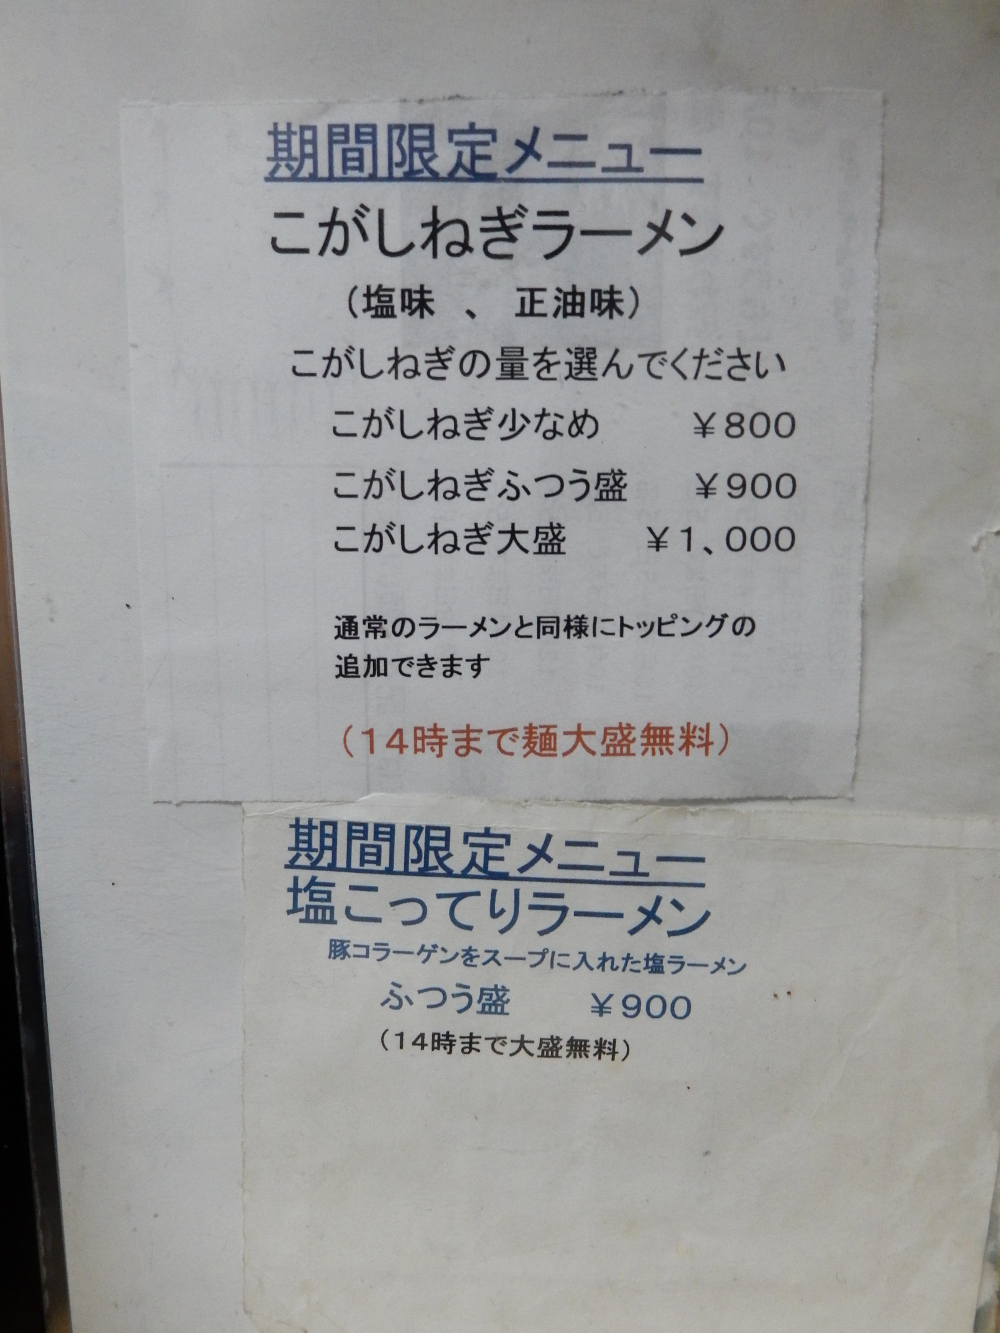 期間限定メニュー
こがしねぎラーメン
（塩味　、　正油味）
こがしねぎの量を選んでください
こがしねぎ少なめ　￥８００
こがしねぎふつう盛　￥９００
こがしねぎ大盛　￥１、０００
通常のラーメンと同様にトッピングの
追加できます
（１４時まで麺大盛無料）
期間限定メニュー
塩こってりラーメン
豚コラーゲンをスープに入れた塩ラーメン
ふつう盛　￥９００
（１４時まで大盛無料）